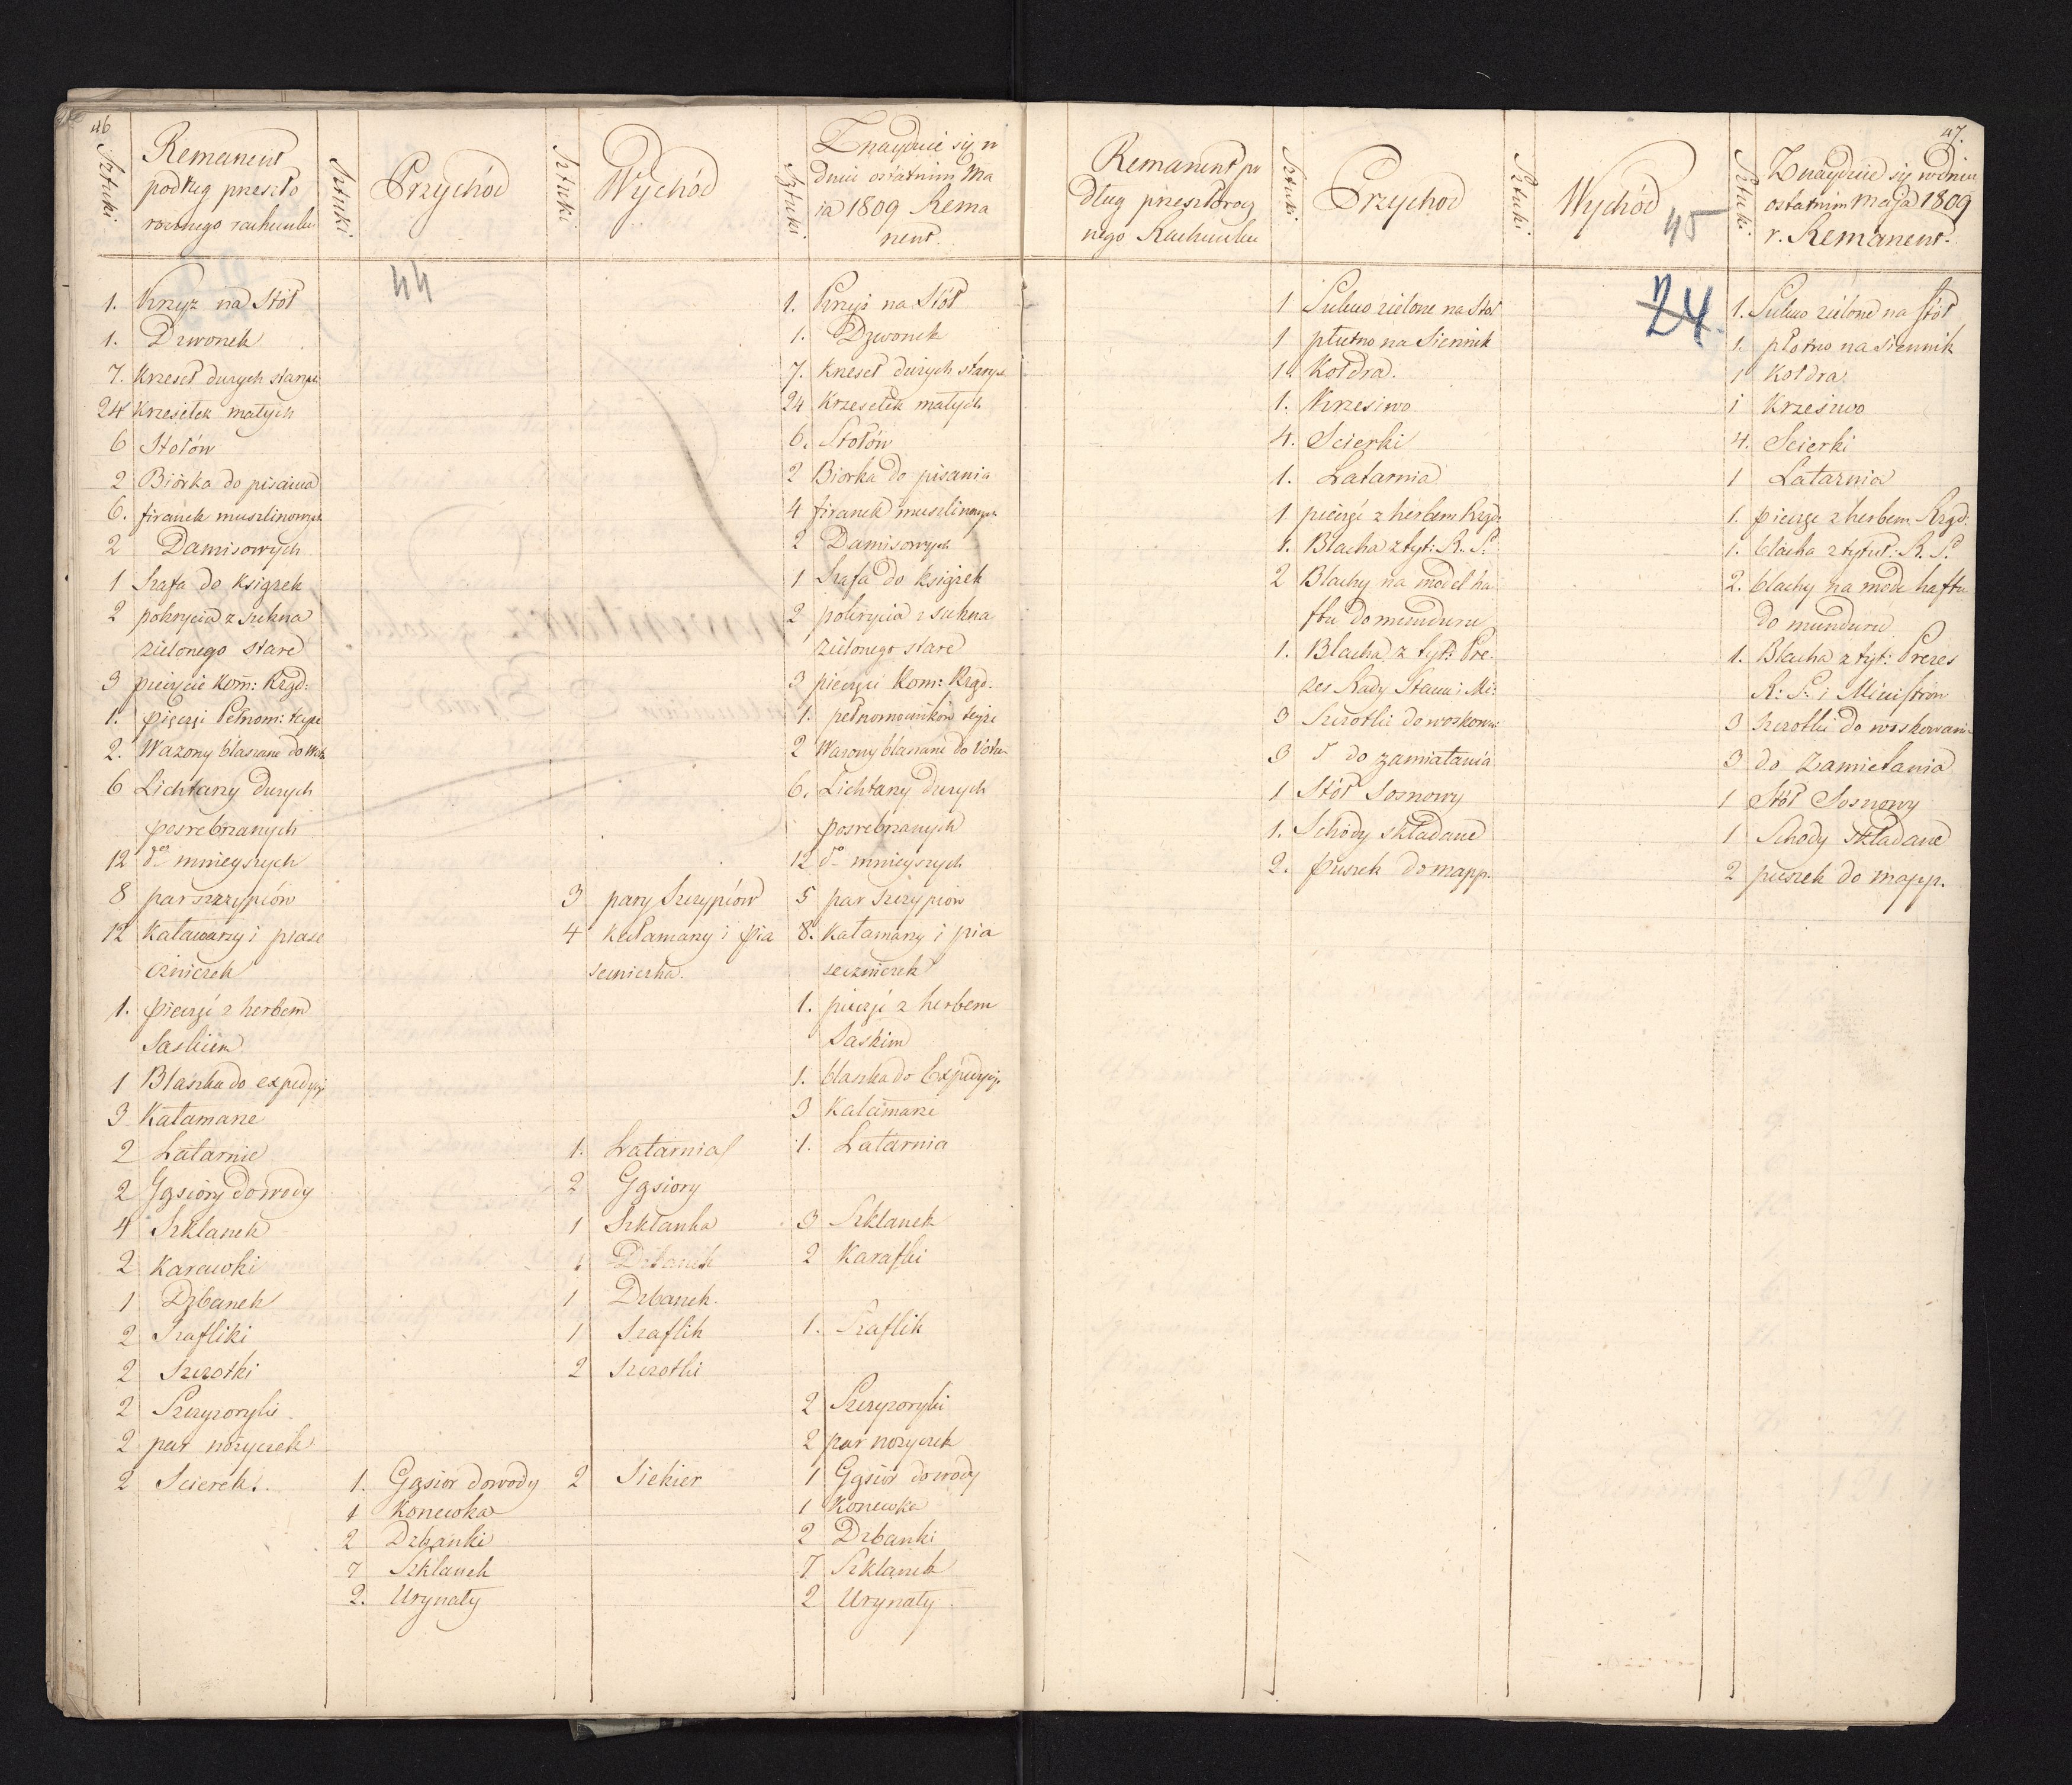 46
Sztuki
Remanent
podług przeszło
rocznego rachunku
Sztuki
Przychód
Sztuki
Wychód
Sztuki
Znayduie się w
dniu ostatnim Ma
ia 1809 Rema
nent.
44
1. Krzyż na Stół 1. Krzyż na Stół
1. Dzwonek 1. Dzwonek
7. Krzeseł dużych starych 7. Krzeseł dużych starych
24 Krzesełek małych 24 Krzesełek małych
6 Stołów 6. Stołów
2 Biórka do pisania 2 Biorka do pisania
6. firanek muszlinowych 4 firanek muszlinowych
2 Damisowych 2 Damisowych
1 Szafa do książek 1 Szafa do książek
2 pokrycia z sukna 2 pokrycia z sukna
zielonego stare zielonego stare
3 pieczęcie Kom: Rząd: 3 pieczęci Kom: Rząd.
1. pieczęć Pełnom: teyże 1. pełnomocników teyże
2. Wazony blaszane do 2 Wazony blaszane do
6 Lichtarzy dużych 6. Lichtarzy dużych
posrebrzanych posrebrzanych
12 do mnieyszych 12 do mnieyszych
8 par szczypców 3 pary Szczypców 5 par szczypców
12 Kałamarzy i piase 4 Kałamarzy i pia 8. Kałamarzy i pia
czniczek seczniczka. seczniczek
1. pieczęć z herbem 1. pieczęć z herbem
Saskiem Saskim
1 Blaszka do expedycyi 1. blaszka do Expedycyi
3 Kałamarze 3 Kałamarze
2 Latarnie 1. Latarnia 1. Latarnia
2 Gąsiory do wody 2 Gąsiory
4 Szklanek 1 Szklanka 3 Szklanek
2 Karawki 1 Dzbanek 2 Karafki
1 Dzbanek 1 Dzbanek.
2 Szafliki 1 Szaflik 1. Szaflik
2 Szczotki 2 szczotki
2 Szczyzoryki 2 Szczyzoryki
2 par nożyczek 2 par nożyczek
2 Scierek. 1. Gąsior do wody 2 Siekier 1 Gąsior do wody
1 Konewka 1 Konewka
2 Dzbanki 2 Dzbanki
7 Szklanek 7 Szklanek
2. Urynały 2 Urynały
47.
Remanent po
dług przeszłorocz
nego Rachunku
Sztuki
Przychod
Sztuki
Wychód
45
Sztuki
Znayduie się w dniu
ostatnim maja 1809
r. Remanent.
24
1 Sukno zielone na Stół 1. Sukno zielone na stół
1 płutno na Siennik 1. płotno na siennik
1. Kołdra. 1 Kołdra
1. Krzesiwo 1 Krzesiwo
4. Scierki 4. Scierki
1. Latarnia 1 Latarnia
1. pieczęć z herbem Rząd: 1. pieczęć z herbem Rząd:
1. Blacha z tyt: R. S. 1. blacha z tytuł: R. S.
2 Blachy na model ha 2. blachy na mode haftu
ftu do munduru do munduru
1. Blacha z tyt: Pre- 1. Blacha z tyt: Prezes
zes Rady Stanu i Mi: R: S: i Ministrów
3 Szczotki do woskow: 3 szczotki do woskowani
3 do zamiatania 3 do zamietania
1 Stół Sosnowy 1 Stół Sosnowy
1. Schody składane 1 Schody składane
2. puszek do mapp. 2 puszek do mapp.